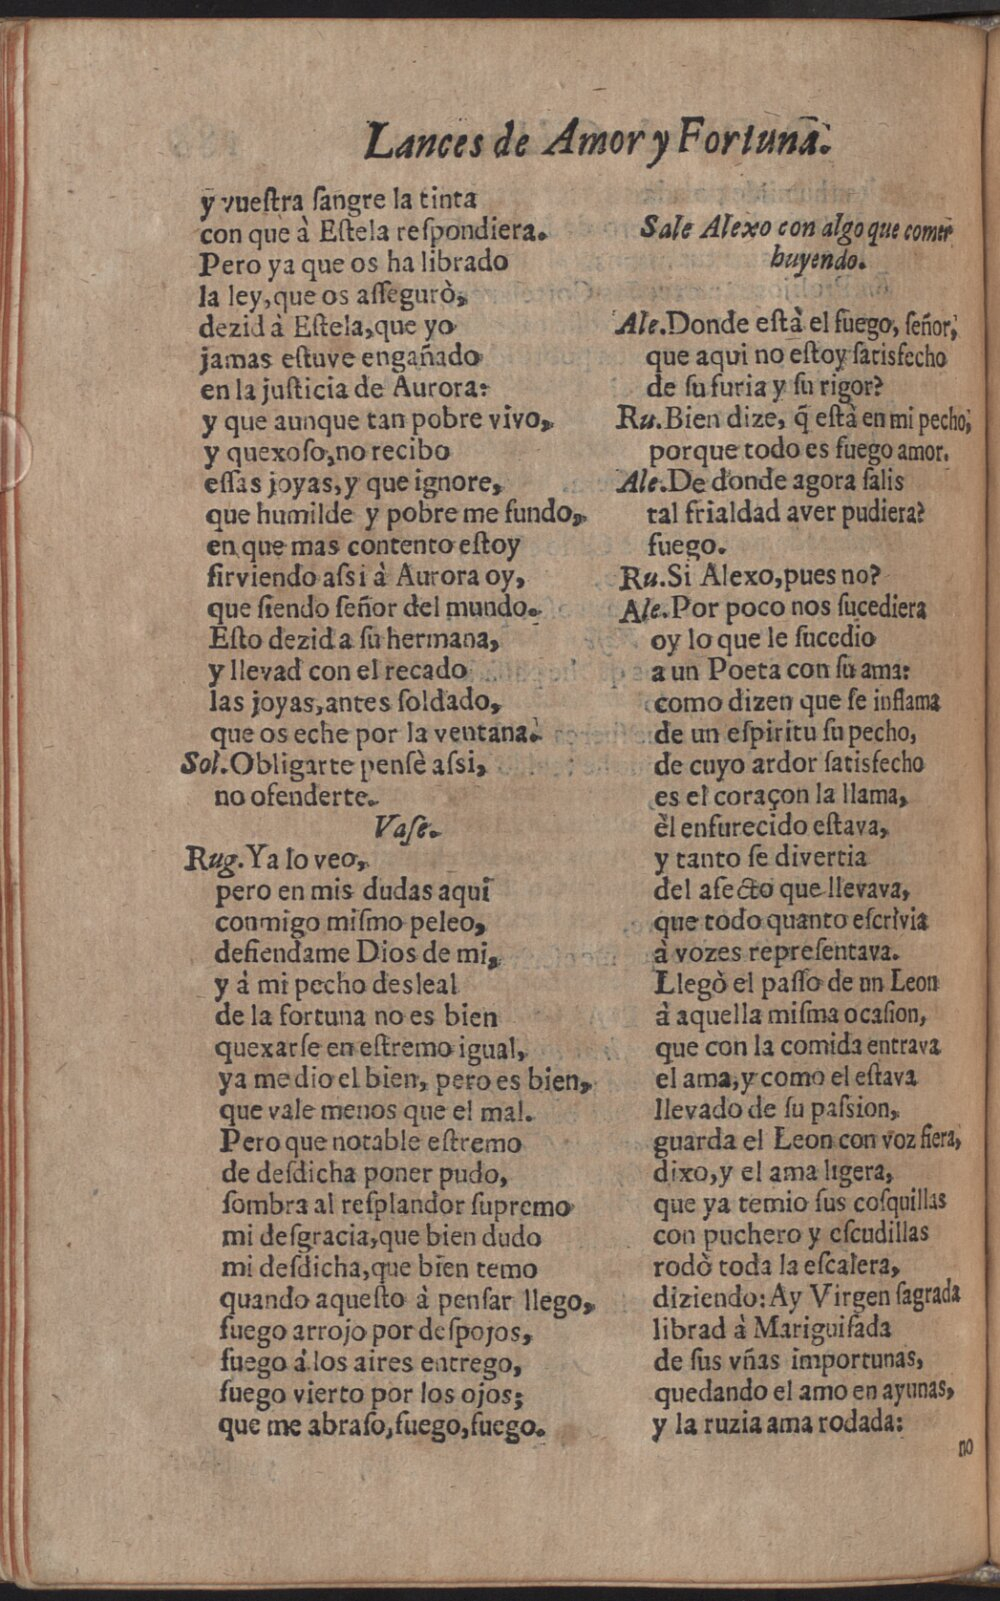 Lances de Amor y Fortuna.
y vuestra sangre la tinta
con que à Estela respondiera.
Pero ya que os ha librado
la ley, que os assegurò,
dezid à Estela, que yo
jamas estuve engañado
en la justicia de Aurora:
y que aunque tan pobre vivo,
y quexoso, no recibo
essas joyas, y que ignore,
que humilde y pobre me fundo,
en que mas contento estoy
sirviendo assi à Aurora oy,
que siendo señor del mundo.
Esto dezid a su hermana,
y llevad con el recado
las joyas, antes soldado,
que os eche por la ventana.
Sol. Obligarte pensè assi,
no ofenderte.
Vase.
Rug. Ya lo veo,
pero en mis dudas aqui
conmigo mismo peleo,
defiendame Dios de mi,
y á mi pecho desleal
de la fortuna no es bien
quexarse en estremo igual,
ya me dio el bien, pero es bien,
que vale menos que el mal.
Pero que notable estremo
de desdicha poner pudo,
sombra al resplandor supremo
mi desgracia, que bien dudo
mi desdicha, que bien temo
quando aquesto à pensar llego,
fuego arrojo por despojos,
fuego á los aires entrego,
fuego vierto por los ojos;
que me abraso, fuego, fuego.
Sale Alexo con algo que comer
huyendo.
Ale. Donde està el fuego, señor,
que aqui no estoy satisfecho
de su furia y su rigor?
Ru. Bien dize, q̃ està en mi pecho,
porque todo es fuego amor.
Ale. De donde agora salis
tal frialdad aver pudiera?
fuego.
Ru. Si Alexo, pues no?
Ale. Por poco nos sucediera
oy lo que le sucedio
a un Poeta con su ama:
como dizen que se inflama
de un espiritu su pecho,
de cuyo ardor satisfecho
es el coraçon la llama,
èl enfurecido estava,
y tanto se divertia
del afecto que llevava,
que todo quanto escrivia
à vozes representava.
Llegò el passo de un Leon
à aquella misma ocasion,
que con la comida entrava
el ama, y como el estava
llevado de su passion,
guarda el Leon con voz fiera,
dixo, y el ama ligera,
que ya temio sus cosquillas
con puchero y escudillas
rodò toda la escalera,
diziendo: Ay Virgen sagrada
librad à Mariguisada
de sus vñas importunas,
quedando el amo en ayunas,
y la ruzia ama rodada:
no